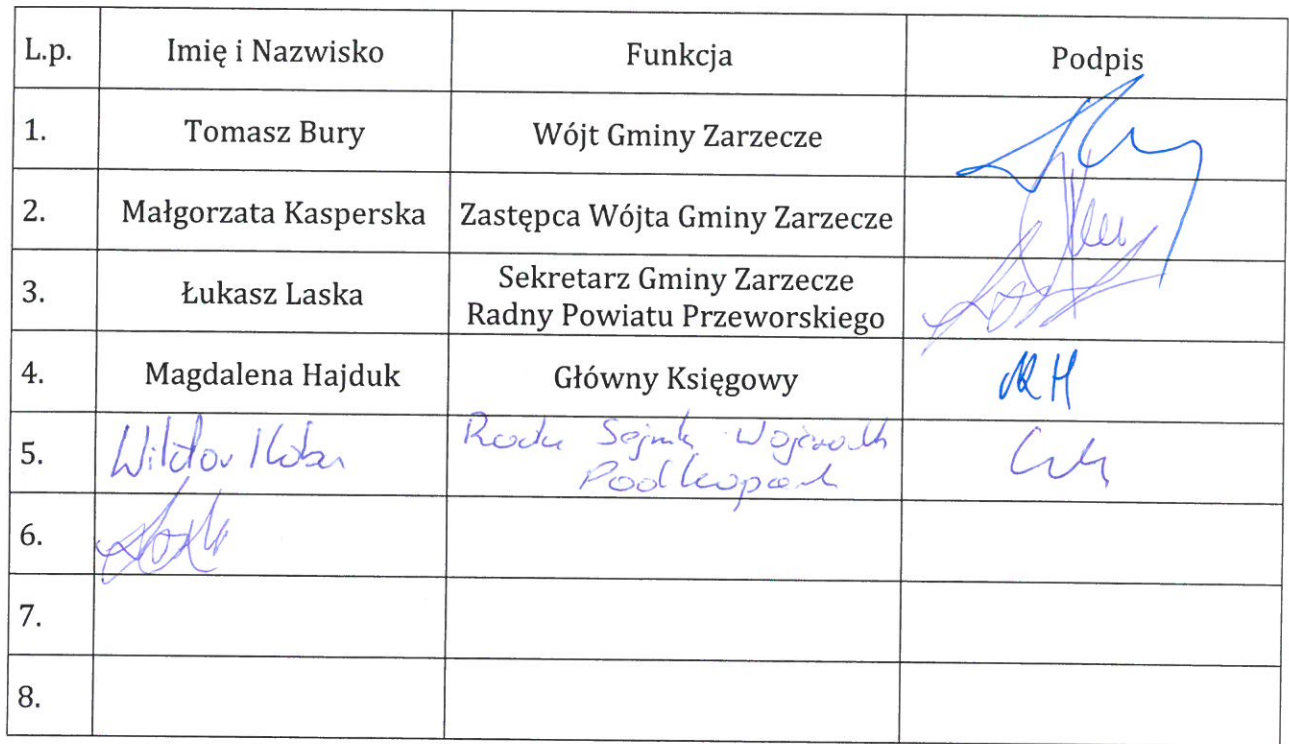 L.p. Imię i Nazwisko Funkcja Podpis
1. Tomasz Bury Wójt Gminy Zarzecze
2. Małgorzata Kasperska Zastępca Wójta Gminy Zarzecze
3. Łukasz Laska Sekretarz Gminy Zarzecze
Radny Powiatu Przeworskiego
4. Magdalena Hajduk Główny Księgowy MH
5. Wiktor
6.
7.
8.